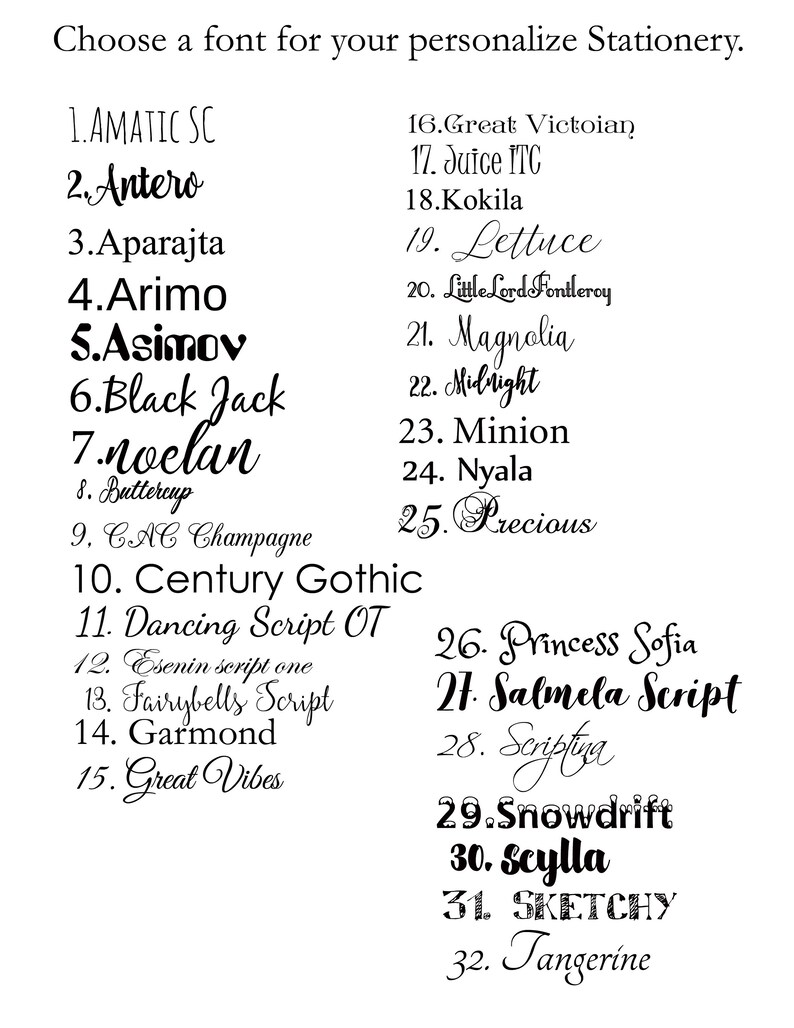 Choose a font for your personalize Stationery.
1.Amatic SC
2.Antero
3.Aparajta
4.Arimo
5.Asimov
6.Black Jack
7.noelan
8. Buttercup
9, CAC Champagne
10. Century Gothic
11. Dancing Script OT
12. Esenin script one
13. Fairybells Script
14. Garmond
15. Great Vibes
16.Great Victoian
17. Juice ITC
18.Kokila
19. Lettuce
20. LittleLordFontleroy
21. Magnolia
22. Midnight
23. Minion
24. Nyala
25.Precious
26. Princess Sofia
27. Salmela Script
28. Scriptina
29.Snowdrift
30. Scylla
31. SKETCHY
32. Tangerine